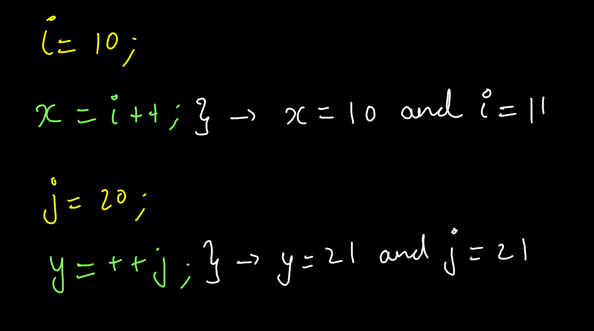 i = 10;
x = i++; } → x = 10 and i = 11
j = 20;
y = ++j; } → y = 21 and j = 21